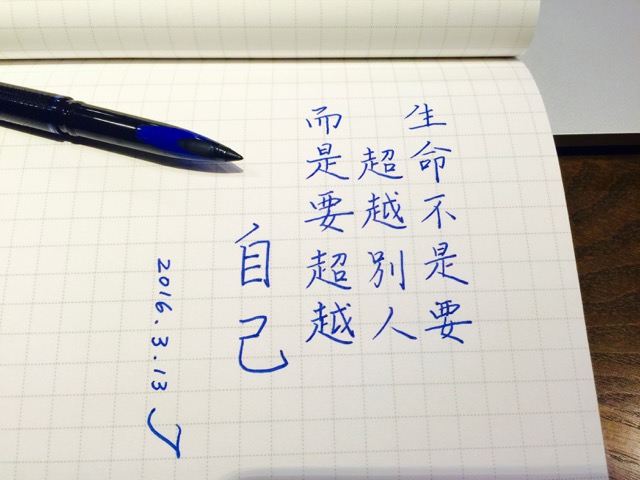 生命不是要
超越別人
而是要超越
自己
2016.3.13